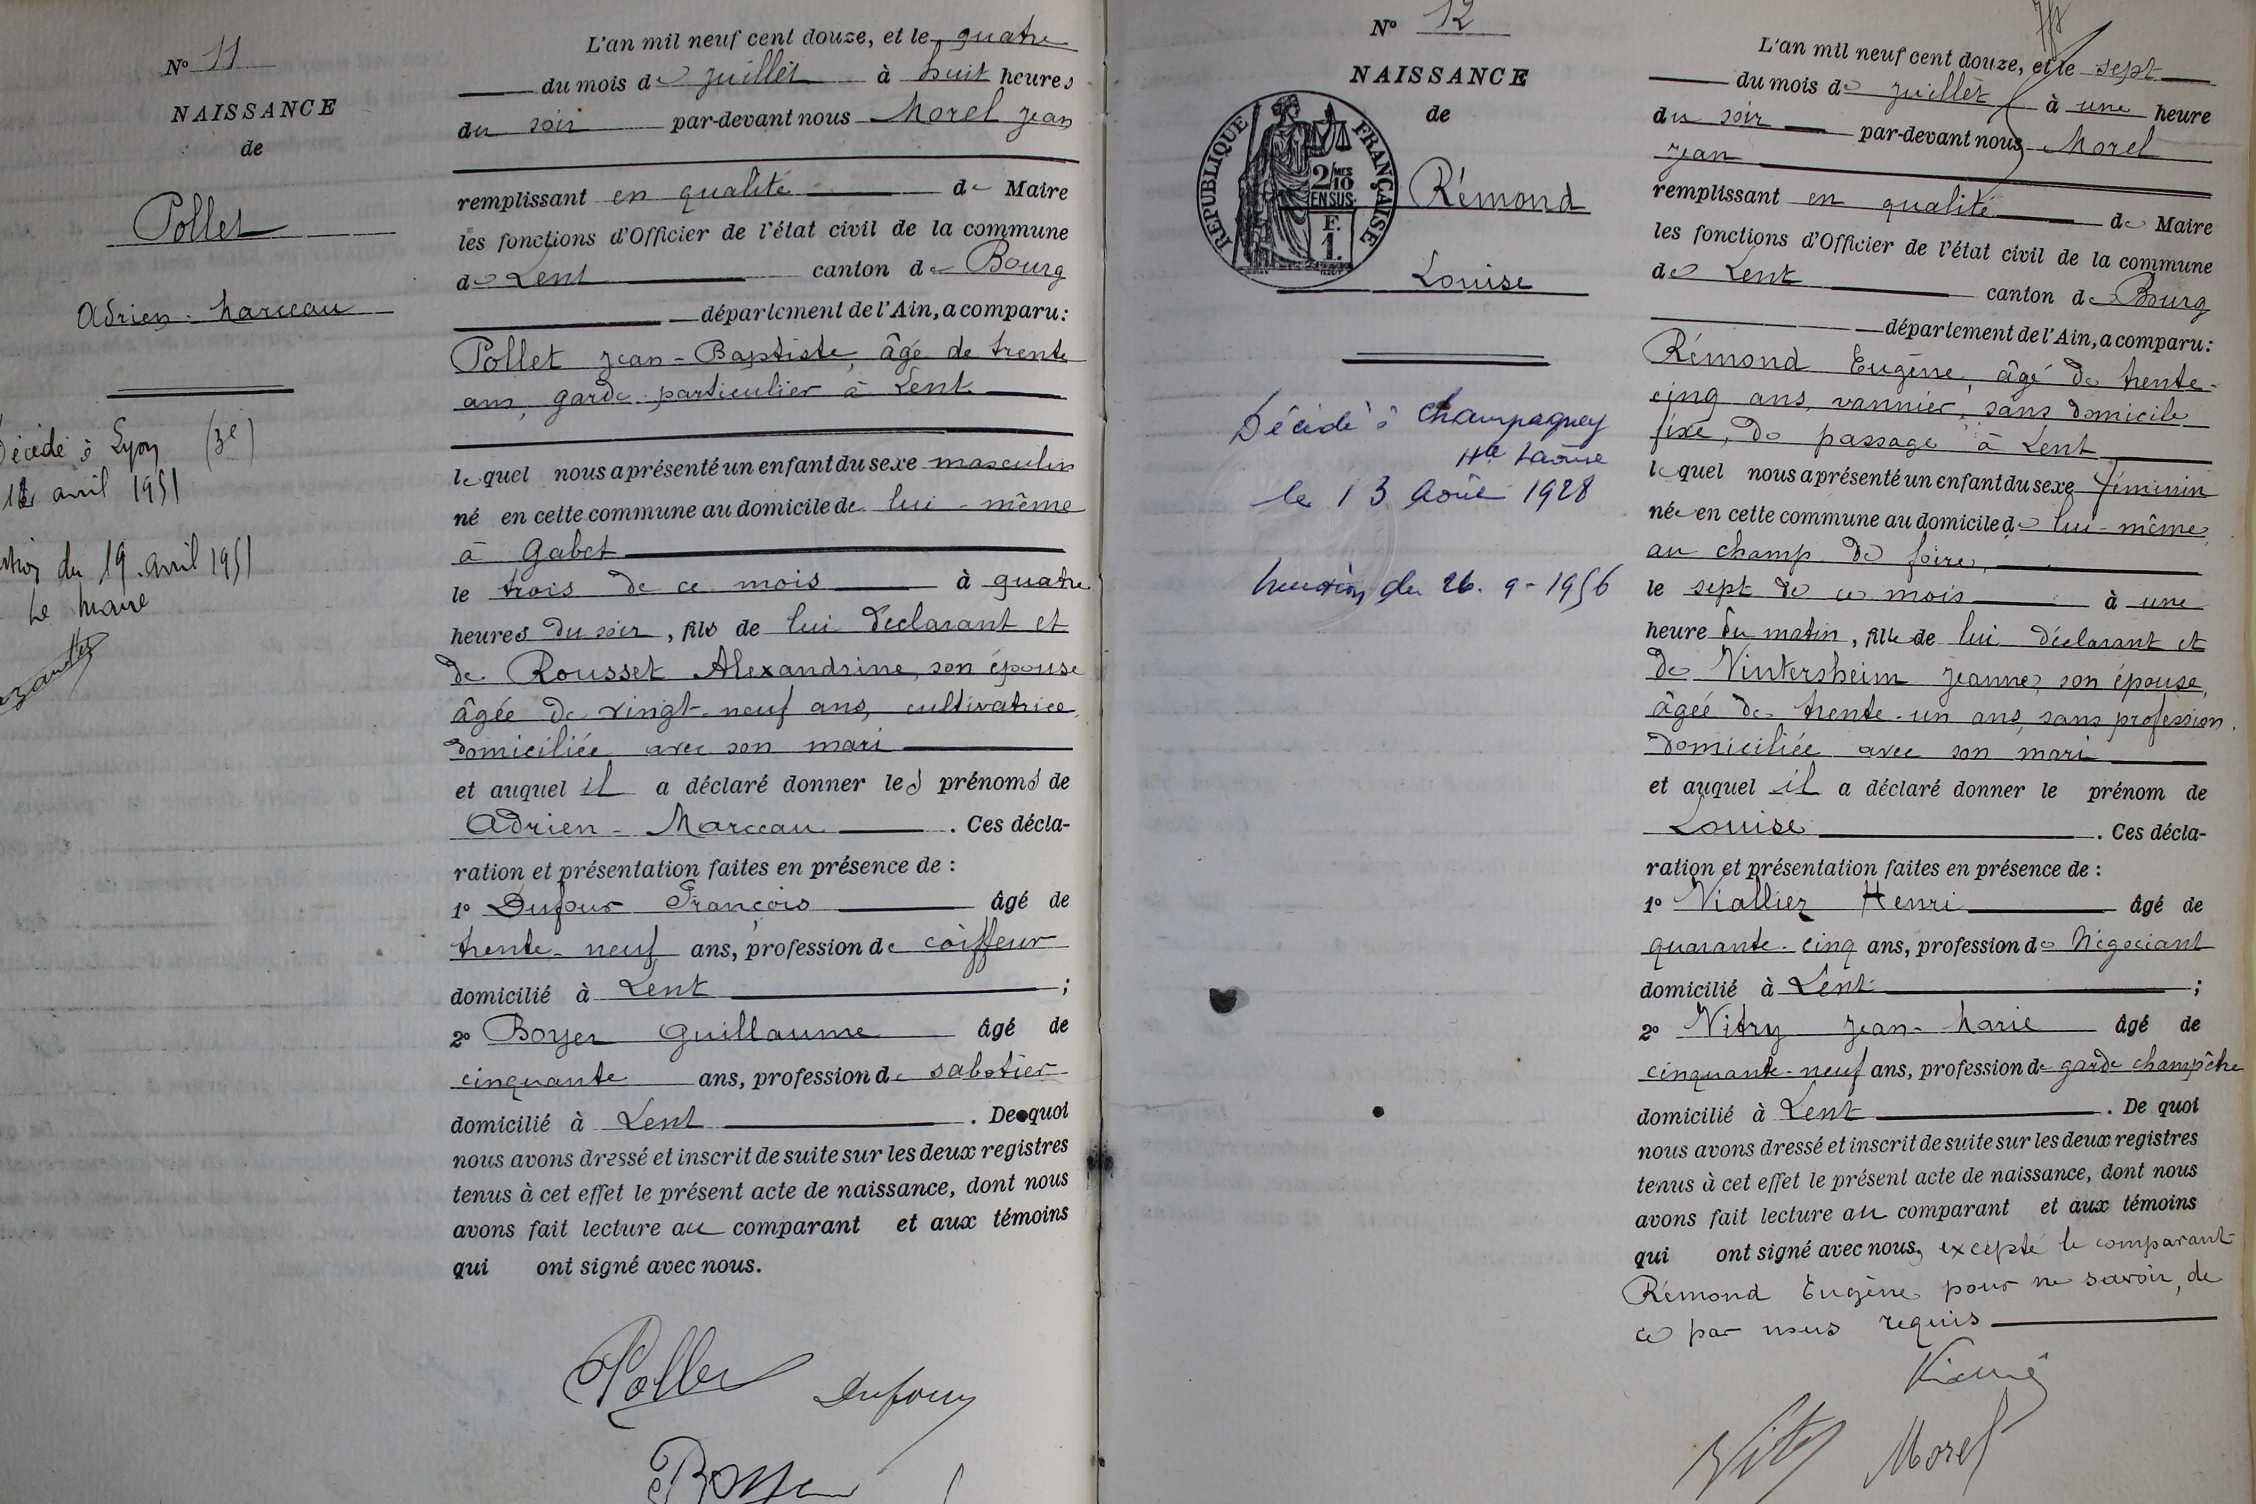 N° 11
NAISSANCE
de
Pollet
Adrien - Marceau
Décédé à Lyon (3e)
12 avril 1951
du 19 avril 1951
Le Maire
L'an mil neuf cent douze, et le quatre
du mois de juillet à huit heures
du soir par-devant nous Morel Jean
remplissant en qualité de Maire
les fonctions d'Officier de l'état civil de la commune
de Lent canton de Bourg
département de l'Ain, a comparu :
Pollet Jean-Baptiste, âgé de trente
ans, garde particulier à Lent
lequel nous a présenté un enfant du sexe masculin
né en cette commune au domicile de lui-même
à Gabet
le trois de ce mois à quatre
heures du soir, fils de lui déclarant et
de Rousset Alexandrine, son épouse
âgée de vingt-neuf ans, cultivatrice,
domiciliée avec son mari
et auquel il a déclaré donner les prénoms de
Adrien - Marceau. Ces décla-
ration et présentation faites en présence de :
1° Dufour François âgé de
trente-neuf ans, profession de coiffeur
domicilié à Lent ;
2° Boyer Guillaume âgé de
cinquante ans, profession de sabotier
domicilié à Lent. De quoi
nous avons dressé et inscrit de suite sur les deux registres
tenus à cet effet le présent acte de naissance, dont nous
avons fait lecture au comparant et aux témoins
qui ont signé avec nous.
Pollet Dufour
Boyer
N° 12
NAISSANCE
de
RÉPUBLIQUE FRANÇAISE
2/10 MES
EN SUS
F.
1.
Rémond
Louise
Décédé à Champagney
Hte Saône
le 13 Août 1928
Mention du 26-9-1956
L'an mil neuf cent douze, et le sept
du mois de juillet à une heure
du soir par-devant nous Morel
Jean
remplissant en qualité de Maire
les fonctions d'Officier de l'état civil de la commune
de Lent canton de Bourg
département de l'Ain, a comparu :
Rémond Eugène, âgé de trente-
cinq ans, vannier, sans domicile
fixe, de passage à Lent
lequel nous a présenté un enfant du sexe féminin
née en cette commune au domicile de lui-même,
au champ de foire,
le sept de ce mois à une
heure du matin, fille de lui déclarant et
de Vintersheim Jeanne, son épouse,
âgée de trente-un ans, sans profession,
domiciliée avec son mari
et auquel il a déclaré donner le prénom de
Louise. Ces décla-
ration et présentation faites en présence de :
1° Viallier Henri âgé de
quarante-cinq ans, profession de Négociant
domicilié à Lent ;
2° Vitry Jean-Marie âgé de
cinquante-neuf ans, profession de garde champêtre
domicilié à Lent. De quoi
nous avons dressé et inscrit de suite sur les deux registres
tenus à cet effet le présent acte de naissance, dont nous
avons fait lecture au comparant et aux témoins
qui ont signé avec nous, excepté le comparant
Rémond Eugène pour ne savoir, de
ce par nous requis
Vitry Morel